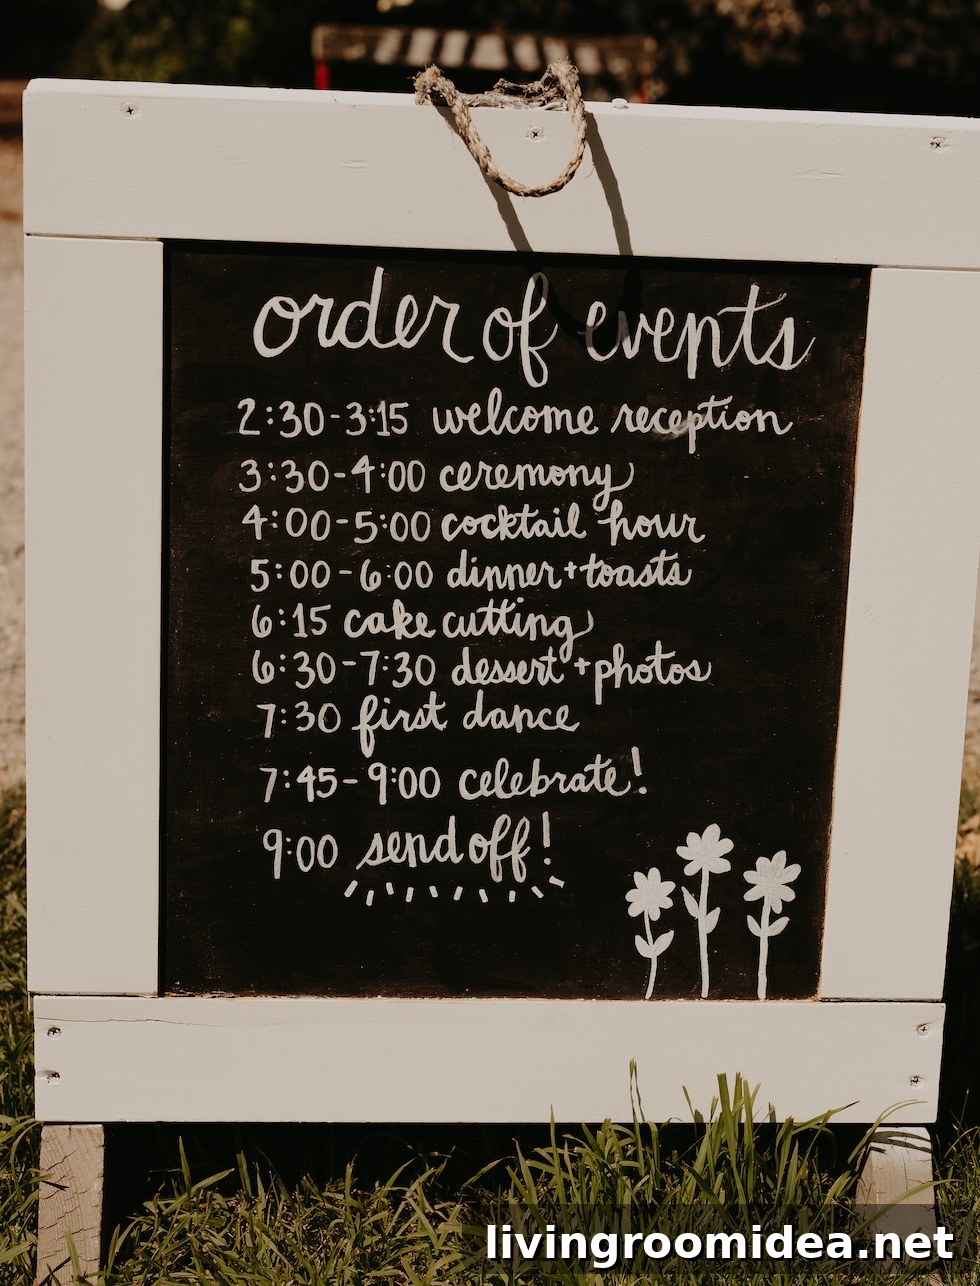 order of events
2:30-3:15 welcome reception
3:30-4:00 ceremony
4:00-5:00 cocktail hour
5:00-6:00 dinner+toasts
6:15 cake cutting
6:30-7:30 dessert+photos
7:30 first dance
7:45-9:00 celebrate!
9:00 send off!
livingroomidea.net